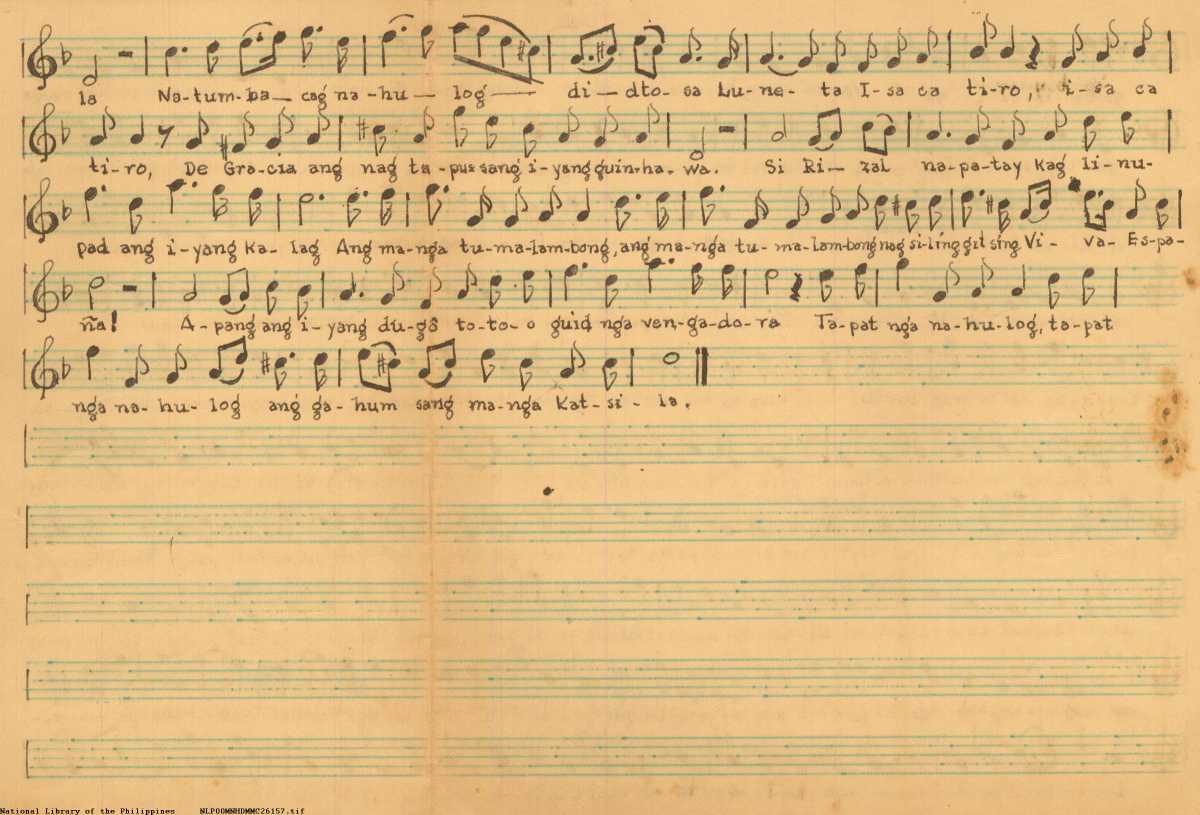 la Na-tum-ba-cag na-hu-log di-dto-sa Lu-ne-ta I-sa ca ti-ro, i-sa ca
ti-ro, De Gra-cia ang nag ta-pus sang i-yang guin-ha-wa. Si Ri-zal na-pa-tay kag li-nu-
pad ang i-yang ka-lag Ang ma-nga tu-ma-lam-bong, ang ma-nga tu-ma-lam-bong nag si-ling git sing Vi-va-Es-pa-
ña! A-pang ang i-yang du-gô to-to-o guid nga ven-ga-do-ra Ta-pat nga na-hu-log, ta-pat
nga na-hu-log ang ga-hum sang ma-nga Kat-si-la.
National Library of the Philippines NLP00MNHDMMC26157.tif